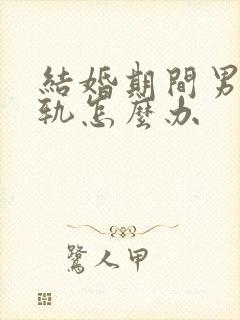 結婚期間男
軌怎麼办
鷺人甲